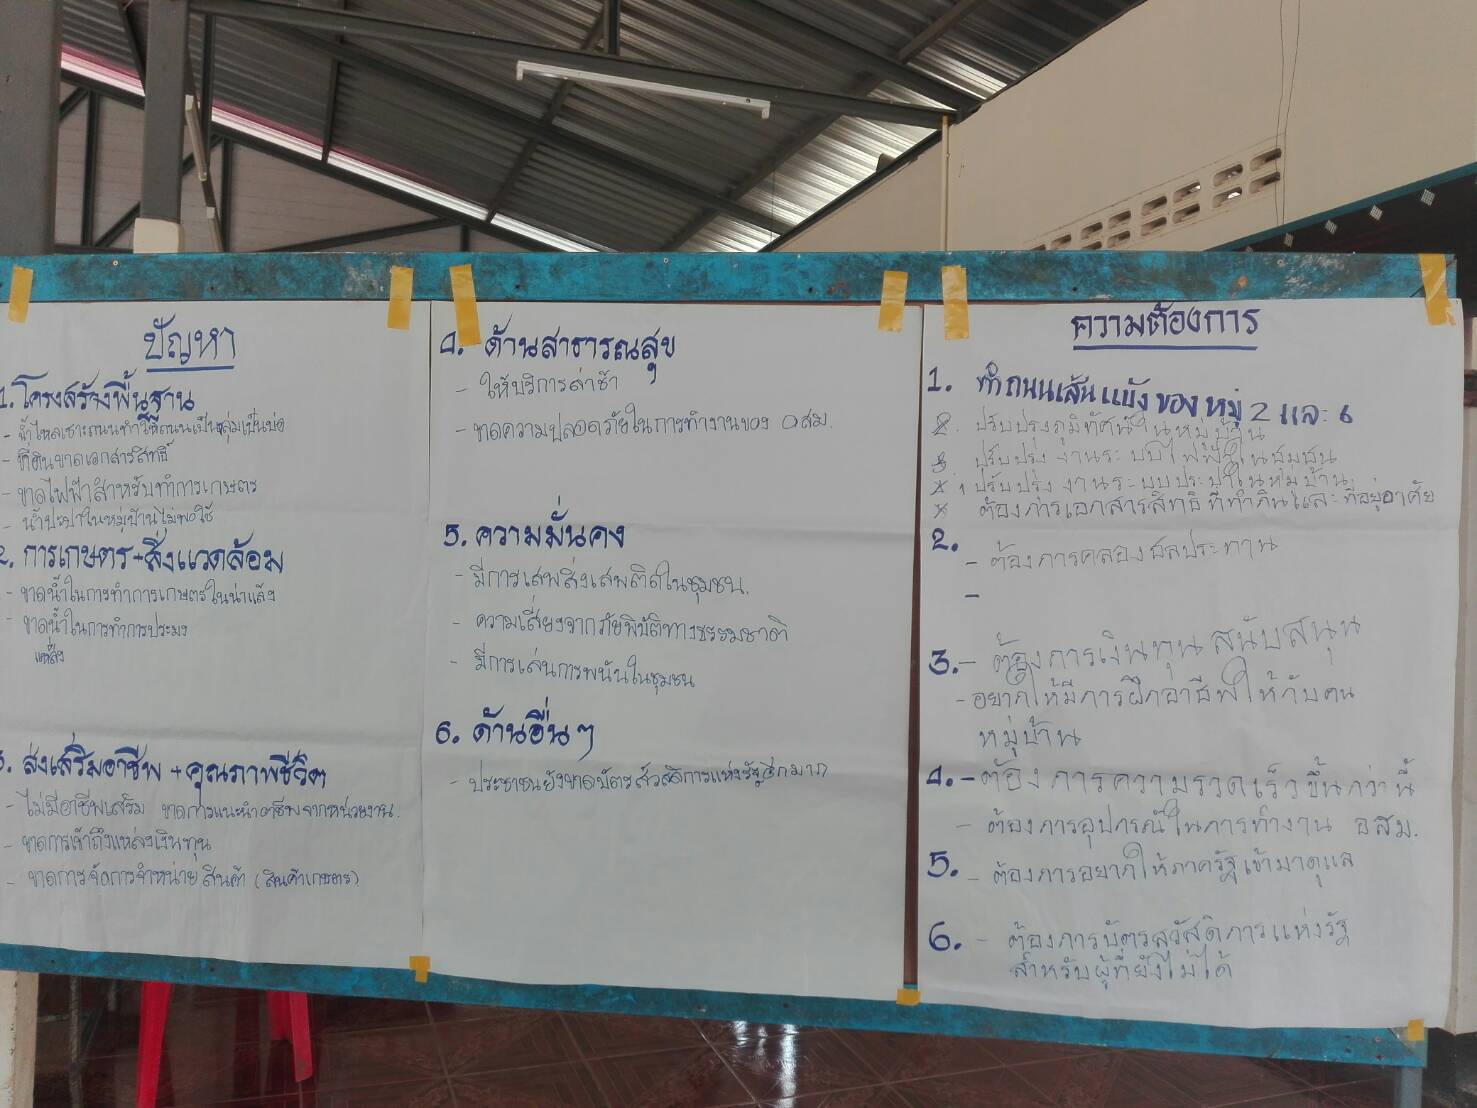 ปัญหา
1. โครงสร้างพื้นฐาน
- น้ำไหลเซาะถนนทำให้ถนนเป็นหลุมเป็นบ่อ
- ที่ดินขาดเอกสารสิทธิ์
- ขาดไฟฟ้าสำหรับทำการเกษตร
- น้ำประปาในหมู่บ้านไม่พอใช้
2. การเกษตร+สิ่งแวดล้อม
- ขาดน้ำในการทำการเกษตรในหน้าแล้ง
- ขาดน้ำในการทำการประมง
3. ส่งเสริมอาชีพ + คุณภาพชีวิต
- ไม่มีอาชีพเสริม ขาดการแนะนำอาชีพจากหน่วยงาน
- ขาดการเข้าถึงแหล่งเงินทุน
- ขาดการจัดการจำหน่ายสินค้า (สินค้าเกษตร)
4. ด้านสาธารณสุข
- ให้บริการล่าช้า
- ขาดความปลอดภัยในการทำงานของ อสม.
5. ความมั่นคง
- มีการเสพสิ่งเสพติดในชุมชน.
- ความเสี่ยงจากภัยพิบัติทางธรรมชาติ
- มีการเล่นการพนันในชุมชน
6. ด้านอื่นๆ
- ประชาชนยังขาดบัตรสวัสดิการแห่งรัฐอีกมาก
ความต้องการ
1. ทำถนนเส้นแบ่งของหมู่ 2 และ 6
ปรับปรุงภูมิทัศน์ในหมู่บ้าน
ปรับปรุง งานระบบไฟฟ้าในชุมชน
ปรับปรุง งานระบบประปาในหมู่บ้าน
ต้องการเอกสารสิทธิ ที่ทำกินและที่อยู่อาศัย
2.
- ต้องการคลองชลประทาน
-
3. - ต้องการเงินทุนสนับสนุน
- อยากให้มีการฝึกอาชีพให้กับคน
หมู่บ้าน
4. - ต้องการความรวดเร็วขึ้นกว่านี้
- ต้องการอุปกรณ์ในการทำงาน อสม.
5. - ต้องการอยากให้ภาครัฐเข้ามาดูแล
6. - ต้องการบัตรสวัสดิการแห่งรัฐ
สำหรับผู้ที่ยังไม่ได้